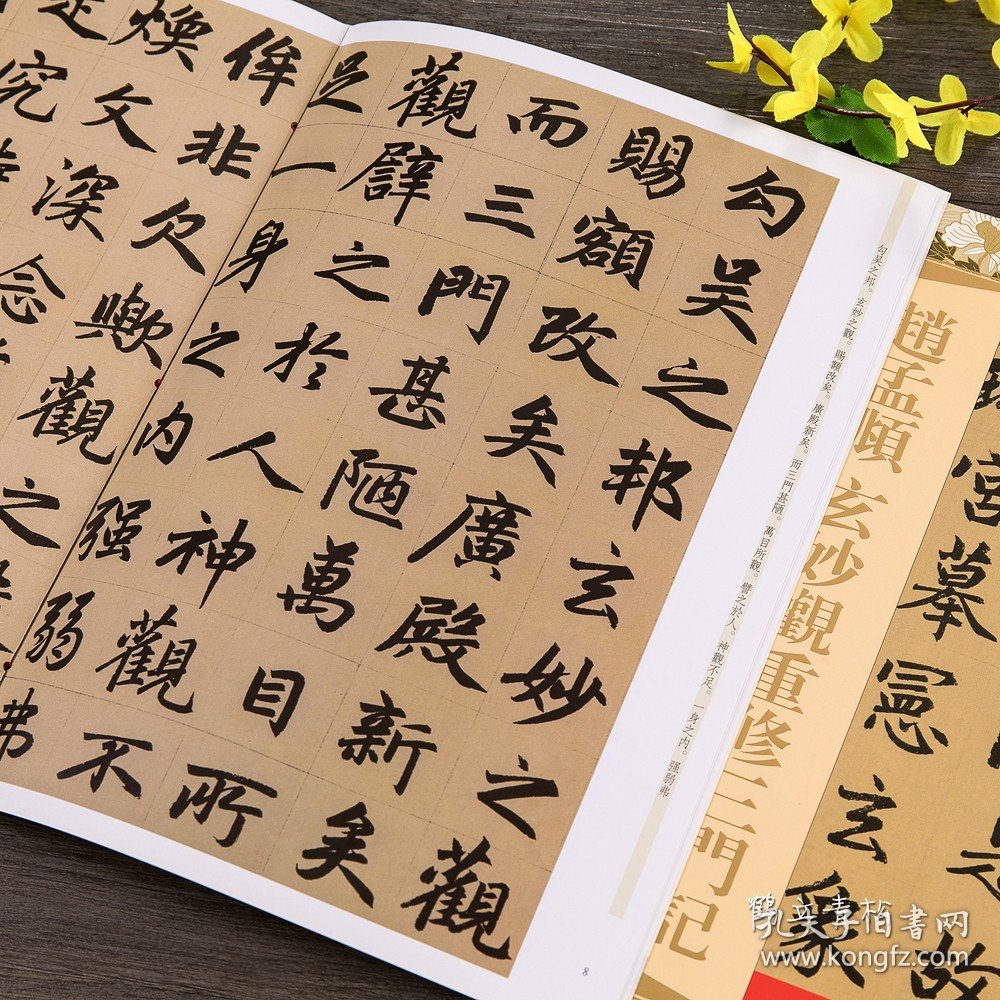 勾吴之邦玄妙之觀
賜額改矣廣殿新矣
而三門甚陋萬目所
觀譬之於人神觀不
足一身之内强弱弗
侔非欠歟觀之
煥文深念
究
勾吴之邦。玄妙之觀。賜額改矣。廣殿新矣。而三門甚陋。萬目所觀。譬之於人。神觀不足。一身之内。强弱弗
8
趙孟頫 玄妙觀重修三門記
故
宮摹憲玄象
書网
www.kongfz.com